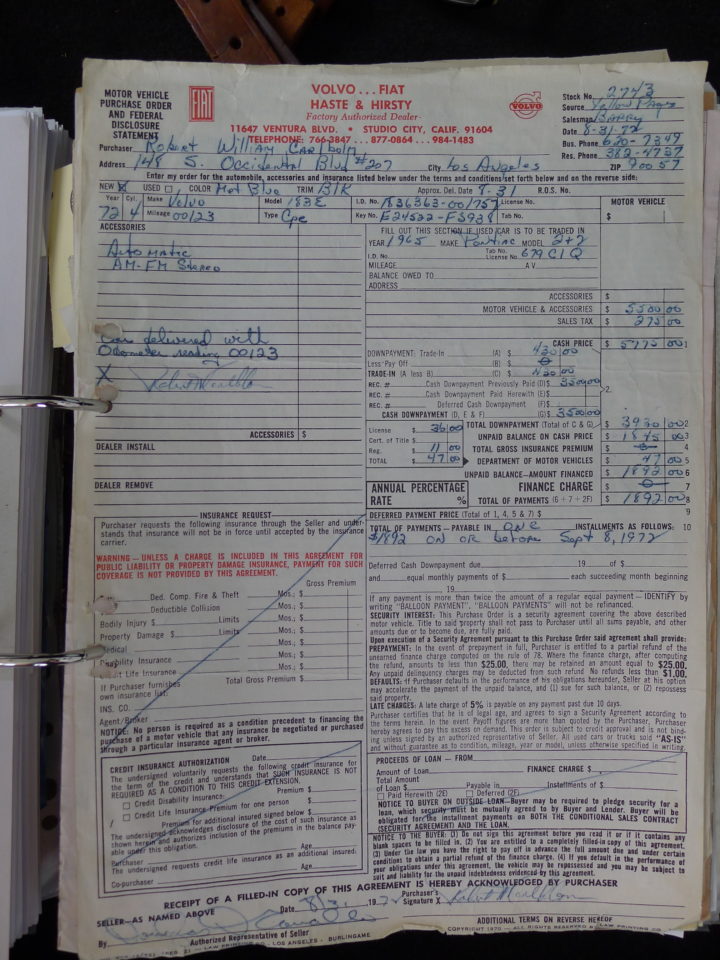 MOTOR VEHICLE
PURCHASE ORDER
AND FEDERAL
DISCLOSURE
STATEMENT
FIAT
VOLVO...FIAT
HASTE & HIRSTY
Factory Authorized Dealer
11647 VENTURA BLVD. • STUDIO CITY, CALIF. 91604
TELEPHONE: 766-3847 ... 877-0864 ... 984-1483
VOLVO
Stock No. 2743
Source Yellow Pages
Salesman Barry
Date 8-31-72
Bus. Phone 620-7349
Res. Phone 382-4737
Purchaser Robert William Carlbolm
Address 148 S. Occidental Blvd #207 City Los Angeles ZIP 90057
Enter my order for the automobile, accessories and insurance listed below under the terms and conditions set forth below and on the reverse side:
NEW X USED COLOR Hot Blue TRIM Blk Approx. Del. Date 8-31 R.O.S. No.
Year 72 Cyl. 4 Make Volvo Model 183E I.D. No. 1836363-001757 License No. MOTOR VEHICLE
Mileage 00123 Type Cpe Key No. E24522-FS938 Tab No.
ACCESSORIES
Automatic
AM-FM Stereo
Car delivered with
Odometer reading 00123
X
ACCESSORIES $
DEALER INSTALL
DEALER REMOVE
FILL OUT THIS SECTION IF USED CAR IS TO BE TRADED IN
YEAR 1965 MAKE Pontiac MODEL 2+2
I.D. No. Tab No. License No. 679 CIQ
MILEAGE A V
BALANCE OWED TO
ADDRESS
ACCESSORIES $
MOTOR VEHICLE & ACCESSORIES $ 5500 00
SALES TAX $ 275 00
CASH PRICE $ 5775 00 1
DOWNPAYMENT: Trade-In (A) $ 430 00
Less Pay Off (B) $ 0
TRADE-IN (A less B) (C) $ 430 00
REC. # Cash Downpayment Previously Paid (D) $ 3500 00
REC. # Cash Downpayment Paid Herewith (E) $
REC. # Deferred Cash Downpayment (F) $
CASH DOWNPAYMENT (D, E & F) (G) $ 3500 00
License $ 36 00
Cert. of Title $
Reg. $ 11 00
TOTAL $ 47 00
TOTAL DOWNPAYMENT (Total of C & G) $ 3930 00 2
UNPAID BALANCE ON CASH PRICE $ 1845 00 3
TOTAL GROSS INSURANCE PREMIUM $ 0 4
DEPARTMENT OF MOTOR VEHICLES $ 47 00 5
UNPAID BALANCE—AMOUNT FINANCED $ 1892 00 6
ANNUAL PERCENTAGE RATE %
FINANCE CHARGE $ 0 7
TOTAL OF PAYMENTS (6 + 7 + 2F) $ 1892 00 8
DEFERRED PAYMENT PRICE (Total of 1, 4, 5 & 7) $ 9
TOTAL OF PAYMENTS—PAYABLE IN one INSTALLMENTS AS FOLLOWS: 10
$1892 on or before Sept 8, 1972
Deferred Cash Downpayment due 19 of $
and equal monthly payments of $ each succeeding month beginning
19
If any payment is more than twice the amount of a regular equal payment — IDENTIFY by
writing "BALLOON PAYMENT". "BALLOON PAYMENTS" will not be refinanced.
SECURITY INTEREST: This Purchase Order is a security agreement covering the above described
motor vehicle. Title to said property shall not pass to Purchaser until all sums payable, and other
amounts due or to become due, are fully paid.
Upon execution of a Security Agreement pursuant to this Purchase Order said agreement shall provide:
PREPAYMENT: In the event of prepayment in full, Purchaser is entitled to a partial refund of the
unearned finance charge computed on the rule of 78. Where the finance charge, after computing
the refund, amounts to less than $25.00, there may be retained an amount equal to $25.00.
Any unpaid delinquency charges may be deducted from such refund. No refunds less than $1.00.
DEFAULTS: If Purchaser defaults in the performance of his obligations hereunder, Seller at his option
may accelerate the payment of the unpaid balance, and (1) sue for such balance, or (2) repossess
said property.
LATE CHARGES: A late charge of 5% is payable on any payment past due 10 days.
Purchaser certifies that he is of legal age, and agrees to sign a Security Agreement according to
the terms herein. In the event Payoff figures are more than quoted by the Purchaser, Purchaser
hereby agrees to pay this excess on demand. This order is subject to credit approval and is not bind-
ing unless signed by an authorized representative of Seller. All used cars or trucks sold "AS IS"
and without guarantee as to condition, mileage, year or model, unless otherwise specified in writing.
INSURANCE REQUEST
Purchaser requests the following insurance through the Seller and under-
stands that insurance will not be in force until accepted by the insurance
carrier.
WARNING — UNLESS A CHARGE IS INCLUDED IN THIS AGREEMENT FOR
PUBLIC LIABILITY OR PROPERTY DAMAGE INSURANCE, PAYMENT FOR SUCH
COVERAGE IS NOT PROVIDED BY THIS AGREEMENT.
Gross Premium
$ Ded. Comp. Fire & Theft Mos.; $
Deductible Collision Mos.; $
Bodily Injury $ Limits Mos.; $
Property Damage $ Limits Mos.; $
Medical Mos.; $
Disability Insurance Mos.; $
Life Insurance Mos.; $
If Purchaser furnishes Total Gross Premium $
own insurance list:
INS. CO.
Agent/Broker
NOTICE: No person is required as a condition precedent to financing the
purchase of a motor vehicle that any insurance be negotiated or purchased
through a particular insurance agent or broker.
CREDIT INSURANCE AUTHORIZATION Date
The undersigned voluntarily requests the following credit insurance for
the term of the credit and understands that SUCH INSURANCE IS NOT
REQUIRED AS A CONDITION TO THIS CREDIT EXTENSION.
Credit Disability Insurance: Premium $
Credit Life Insurance Premium for one person $
Premium for additional insured signed below $
The undersigned acknowledges disclosure of the cost of such insurance as
shown herein and authorizes inclusion of the premiums in the balance pay-
able under this obligation.
Purchaser Age
The undersigned requests credit life insurance as an additional insured:
Co-purchaser Age
PROCEEDS OF LOAN — FROM
Amount of Loan $ FINANCE CHARGE $
Total Amount
of Loan $ Payable in Installments of $
Paid Herewith (2E) Deferred (2F)
NOTICE TO BUYER ON OUTSIDE LOAN—Buyer may be required to pledge security for a
loan, which security must be mutually agreed to by Buyer and Lender. Buyer will be
obligated for the installment payments on BOTH THE CONDITIONAL SALES CONTRACT
(SECURITY AGREEMENT) AND THE LOAN.
NOTICE TO THE BUYER: (1) Do not sign this agreement before you read it or if it contains any
blank spaces to be filled in. (2) You are entitled to a completely filled-in copy of this agreement.
(3) Under the law you have the right to pay off in advance the full amount due and under certain
conditions to obtain a partial refund of the finance charge. (4) If you default in the performance of
your obligations under this agreement, the vehicle may be repossessed and you may be subject to
suit and liability for the unpaid indebtedness evidenced by this agreement.
RECEIPT OF A FILLED-IN COPY OF THIS AGREEMENT IS HEREBY ACKNOWLEDGED BY PURCHASER
SELLER—AS NAMED ABOVE Date 8/31 1972 Purchaser's Signature X
By Authorized Representative of Seller
ADDITIONAL TERMS ON REVERSE HEREOF
LAW PRINTING CO. - LOS ANGELES - BURLINGAME
COPYRIGHT 1970 — ALL RIGHTS RESERVED — LAW PRINTING CO.